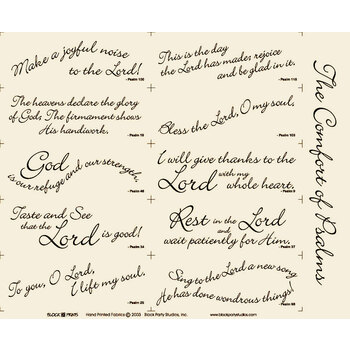 Make a joyful noise
to the Lord!
- Psalm 100
This is the day
the Lord has made; rejoice
and be glad in it.
- Psalm 118
The heavens declare the glory
of God; The firmament shows
His handiwork.
- Psalm 19
Bless the Lord, O my soul,
- Psalm 103
God
is our refuge and our strength,
- Psalm 46
I will give thanks to the
Lord with my
whole heart.
- Psalm 9
Taste and See
that the
Lord is good!
- Psalm 34
Rest in the Lord
and
wait patiently for Him.
- Psalm 37
To you, O Lord,
I lift my soul.
- Psalm 25
Sing to the Lord a new song
He has done wondrous things
- Psalm 98
The Comfort of Psalms
BLOCK PRINTS
Hand Printed Fabrics © 2003 Block Party Studios, Inc.
www.blockpartystudios.com